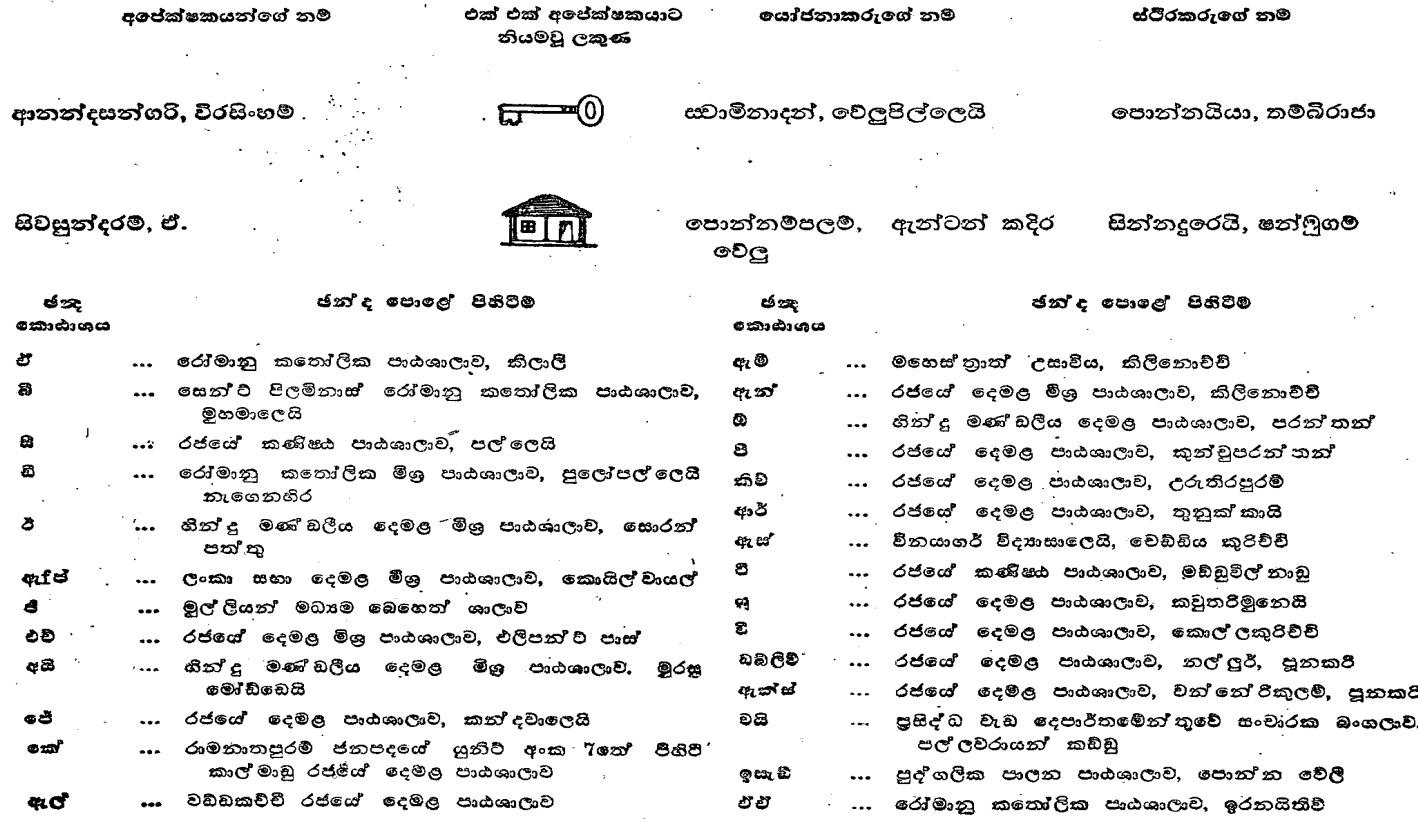 අපේක්ෂකයන්ගේ නම
එක් එක් අපේක්ෂකයාට
නියමවූ ලකුණ
යෝජනාකරුගේ නම
ස්ථිරකරුගේ නම
ආනන්දසන්ගරි, වීරසිංහම්
ස්වාමිනාදන්, වේලුපිල්ලෙයි
පොන්නයියා, තම්බිරාජා
සිවසුන්දරම්, ඒ.
පොන්නම්පලම්, ඇන්ටන් කදිර
වේලු
සින්නදුරෙයි, ෂන්මුගම්
ඡන්ද
කොඨාශය
ඡන්ද පොළේ පිහිටීම
ඒ ... රෝමානු කතෝලික පාඨශාලාව, කිලාලි
බී ... සෙන්ට් පිලමිනාස් රෝමානු කතෝලික පාඨශාලාව,
මුහමාලෙයි
සී ... රජයේ කණිෂ්ඨ පාඨශාලාව, පල්ලෙයි
ඩී ... රෝමානු කතෝලික මිශ්‍ර පාඨශාලාව, පුලෝපල්ලෙයි
නැගෙනහිර
ඊ ... හින්දු මණ්ඩලීය දෙමළ මිශ්‍ර පාඨශාලාව, සොරන්
පත්තු
ඇෆ් ... ලංකා සභා දෙමළ මිශ්‍ර පාඨශාලාව, කොයිල්වායල්
ජී ... මුල්ලියන් මධ්‍යම බෙහෙත් ශාලාව
එච් ... රජයේ දෙමළ මිශ්‍ර පාඨශාලාව, එලිපන්ට් පාස්
අයි ... හින්දු මණ්ඩලීය දෙමළ මිශ්‍ර පාඨශාලාව, මුරසු
මෝඩ්ඩෙයි
ජේ ... රජයේ දෙමළ පාඨශාලාව, කන්දවාලෙයි
කේ ... රාමනාතපුරම් ජනපදයේ යුනිට් අංක 7තේ පිහිටි
කාල්මාඩු රජයේ දෙමළ පාඨශාලාව
ඇල් ... වඩ්ඩකච්චි රජයේ දෙමළ පාඨශාලාව
ඡන්ද
කොඨාශය
ඡන්ද පොළේ පිහිටීම
ඇම් ... මහෙස්ත්‍රාත් උසාවිය, කිලිනොච්චි
ඇන් ... රජයේ දෙමළ මිශ්‍ර පාඨශාලාව, කිලිනොච්චි
ඕ ... හින්දු මණ්ඩලීය දෙමළ පාඨශාලාව, පරන්තන්
පී ... රජයේ දෙමළ පාඨශාලාව, කුන්චුපරන්තන්
කිව් ... රජයේ දෙමළ පාඨශාලාව, උරුතිරපුරම්
ආර් ... රජයේ දෙමළ පාඨශාලාව, තුනුක්කායි
ඇස් ... විනයාගර් විද්‍යාසාලෙයි, චෙඩ්ඩිය කුරිච්චි
ටී ... රජයේ කණිෂ්ඨ පාඨශාලාව, මඩ්ඩුවිල් නාඩු
යු ... රජයේ දෙමළ පාඨශාලාව, කවුතරිමුනෙයි
වී ... රජයේ දෙමළ පාඨශාලාව, කොල්ලකුරිච්චි
ඩබ්ලිව් ... රජයේ දෙමළ පාඨශාලාව, නල්ලුර්, පූනකරි
ඇක්ස් ... රජයේ දෙමළ පාඨශාලාව, වන්නේරිකුලම්, පූනකරි
වයි ... ප්‍රසිද්ධ වැඩ දෙපාර්තමේන්තුවේ සංචාරක බංගලාව,
පල්ලවරායන් කඩ්ඩු
ඉසැඩ් ... පුද්ගලික පාලන පාඨශාලාව, පොන්න වේලි
ඒඒ ... රෝමානු කතෝලික පාඨශාලාව, ඉරනයිතිව්